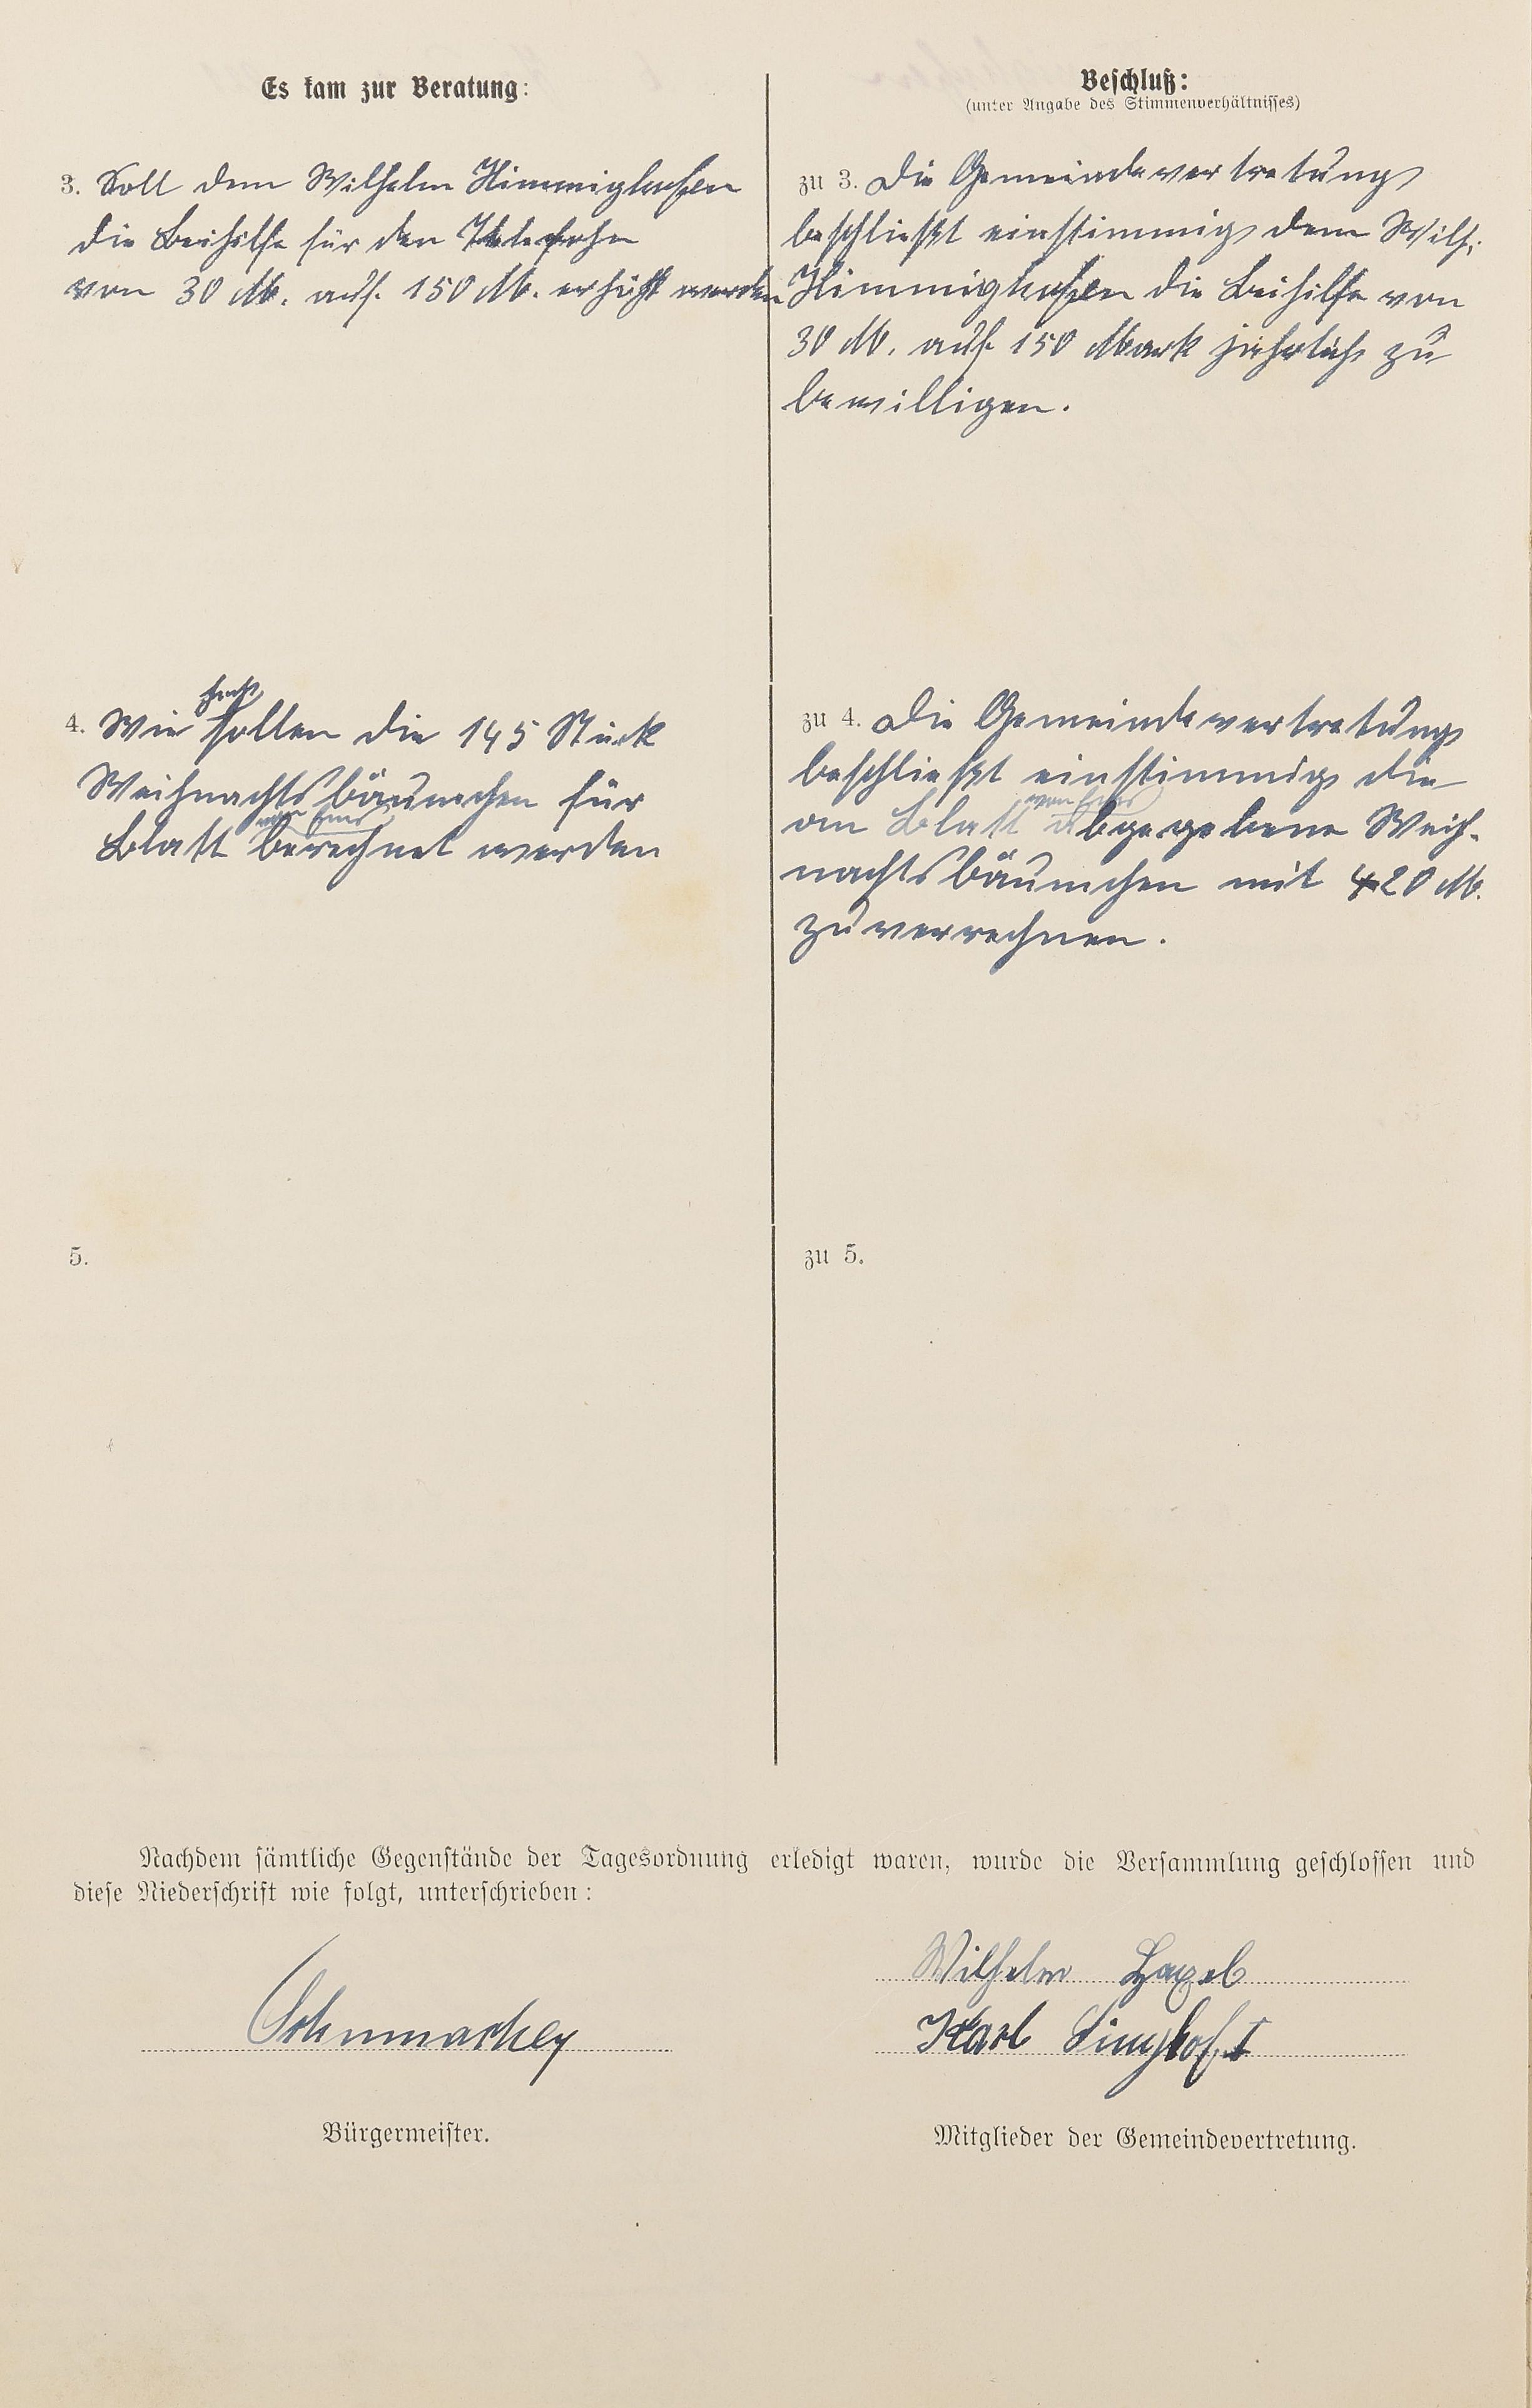 Es kam zur Beratung:
3. Soll dem Wilhelm Himmighofen
die Beihilfe für den Telefohn
von 30 M. auf 150 M. erhöht werden
4. Wie hoch sollen die 145 Stück
Weihnachtsbäumchen für
Blatt von Ems berechnet werden
5.
Beschluß:
(unter Angabe des Stimmenverhältnisses)
zu 3. Die Gemeindevertretung
beschließt einstimmig dem Wilh.
Himmighofen die Beihilfe von
30 M. auf 150 Mark jährlich zu
bewilligen.
zu 4. Die Gemeindevertretung
beschließt einstimmig die
an Blatt von Ems abgegebene Weih-
nachtsbäumchen mit 420 M.
zu verrechnen.
zu 5.
Nachdem sämtliche Gegenstände der Tagesordnung erledigt waren, wurde die Versammlung geschlossen und
diese Niederschrift wie folgt, unterschrieben:
Wilhelm
Karl Singhof I
Bürgermeister.
Mitglieder der Gemeindevertretung.